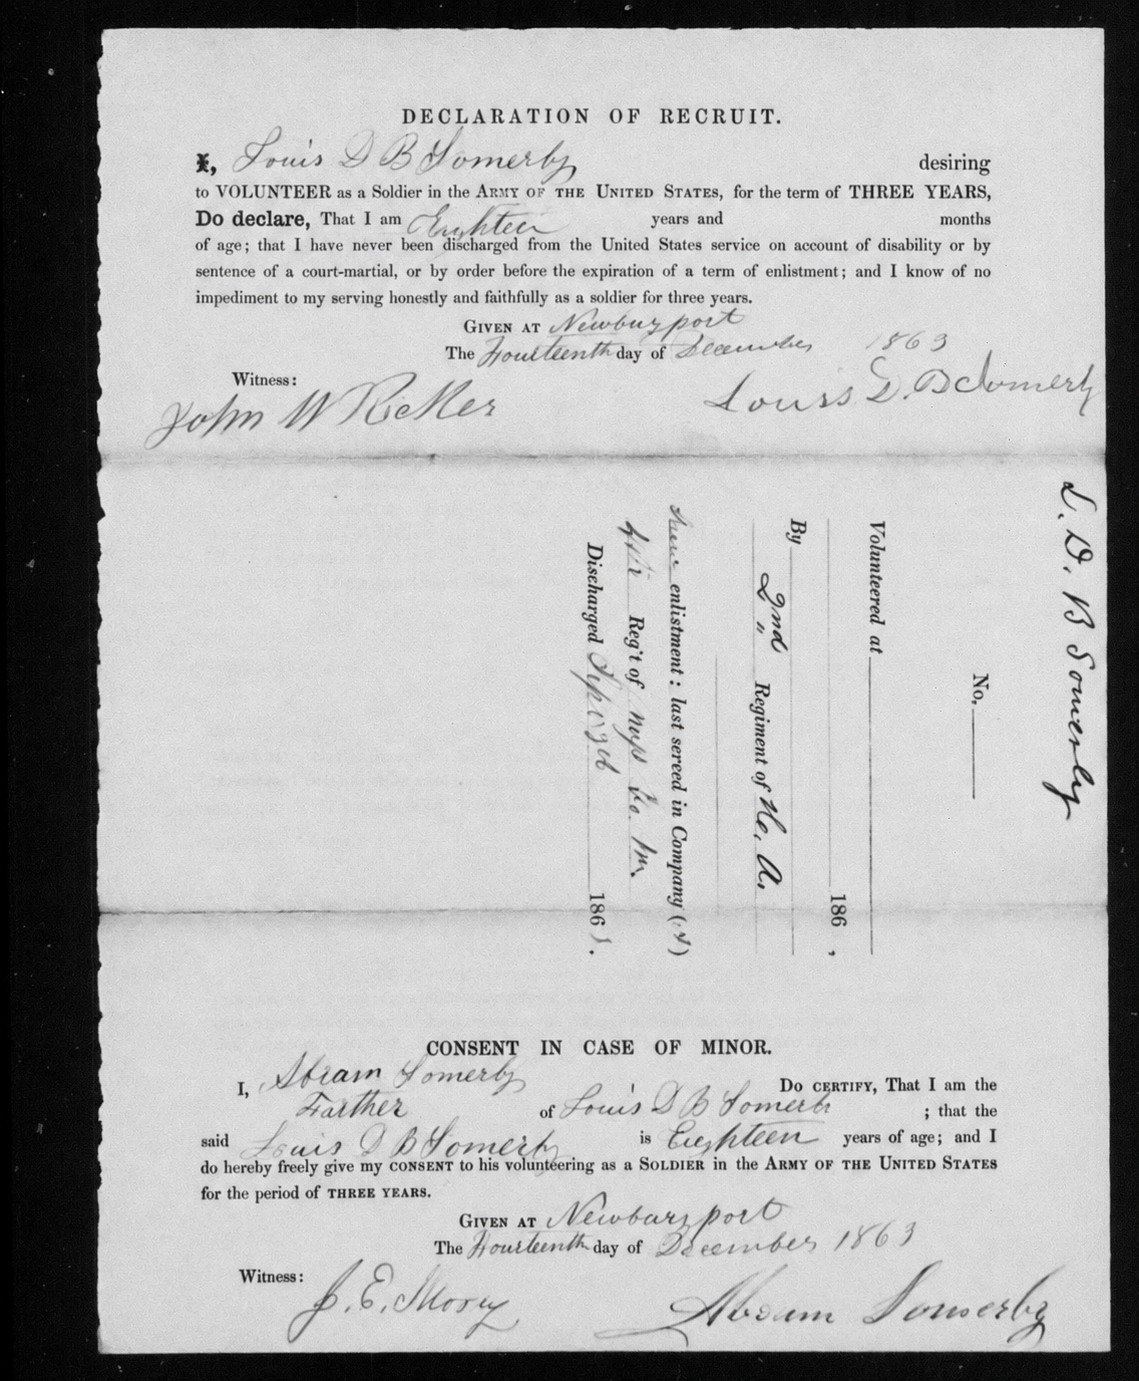 DECLARATION OF RECRUIT.
I, Louis D B Somerby desiring
to VOLUNTEER as a Soldier in the ARMY OF THE UNITED STATES, for the term of THREE YEARS,
Do declare, That I am Eighteen years and months
of age; that I have never been discharged from the United States service on account of disability or by
sentence of a court-martial, or by order before the expiration of a term of enlistment; and I know of no
impediment to my serving honestly and faithfully as a soldier for three years.
GIVEN AT Newburyport
The Fourteenth day of December 1863
Witness:
John W Ricker Louis D. B Somerby
L. D. B Somerby
No.
Volunteered at
186 ,
By
2nd " Regiment of He, A.
enlistment: last served in Company (A)
Reg't of
Discharged 1861.
CONSENT IN CASE OF MINOR.
I, Abram Somerby Do CERTIFY, That I am the
Farther of Louis D B Somerby ; that the
said Louis D B Somerby is Eighteen years of age; and I
do hereby freely give my CONSENT to his volunteering as a SOLDIER in the ARMY OF THE UNITED STATES
for the period of THREE YEARS.
GIVEN AT Newburyport
The Fourteenth day of December 1863
Witness:
J. E. Abram Somerby